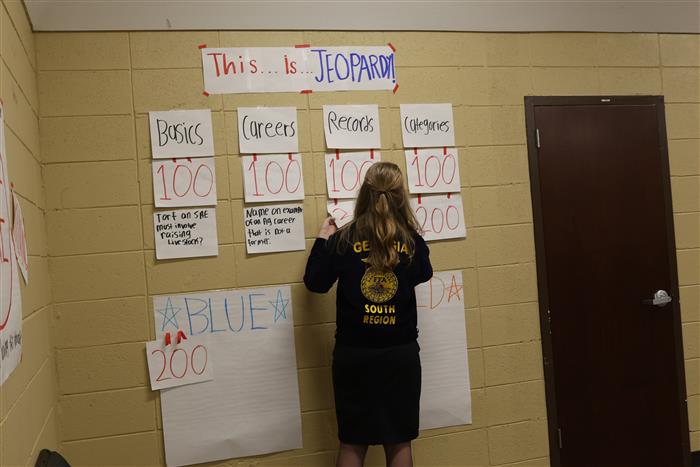 This...Is...JEOPARDY!
Basics
Careers
Records
Categories
100
100
100
100
T or F an SAE
must involve
raising
Livestock?
Name an example
of an Ag career
that is not a
farmer.
200
GEORGIA
SOUTH
REGION
BLUE
200